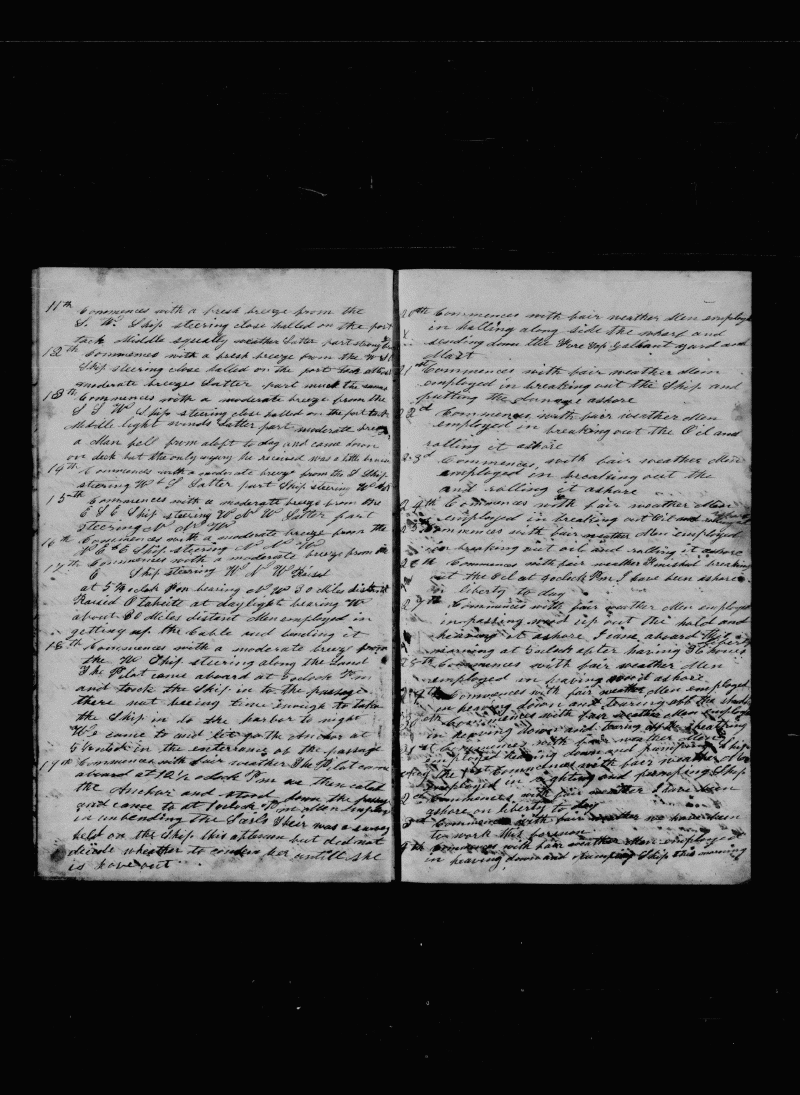 11th Commences with a fresh breeze from the
S. W. Ship steering close halled on the port
tack Middle squally weather Latter part strong
12th Commences with a fresh breeze from the W S W
Ship steering close halled on the port tack
moderate breeze Latter part much the same
13th Commences with a moderate breeze from the
S S W Ship steering close halled on the port tack
Middle light winds Latter part moderate breeze
a Man fell from aloft to day and came down
on deck but the only injury he received was a little bruise
14th Commences with a moderate breeze from the S Ship
steering W & S Latter part Ship steering W
15th Commences with a moderate breeze from the
E S E Ship steering W N W Latter part
steering N N W
16th Commences with a moderate breeze from the
N E & E Ship steering N N W
17th Commences with a moderate breeze from the
E Ship steering W N W Raised
at 5 oclock Pm bearing N W 30 Miles distant
Raised Otaheitt at daylight bearing W
about 30 Miles distant Men employed in
getting up the Cable and bending it
18th Commences with a moderate breeze from
the Ne Ship steering along the Land
The Pilot came aboard at 5 oclock Pm
and took the Ship in to the passage
there not being time inough to take
the Ship in to the harbor to night
We came to and let go the Anchor at
5 in the enterrance of the passage
19th Commences with fair weather The Pilot came
aboard at 12½ oclock Pm we then
the Anchor and stood down the passage
and came to at oclock Pm Men employed
in unbending the Sails Their was a survey
held on the Ship this afternoon but did not
decide wheather to condem her untill she
is hove out
20th Commences with fair weather Men employed
in halling along side the wharf and
sending down the Fore Top Gallant yard and
Mast
21st Commences with fair weather Men
employed in breaking out the Ship and
putting the dunnage ashore
22d Commences with fair weather Men
employed in breaking out the Oil and
rolling it ashore
23d Commences with fair weather Men
employed in breaking out the
and rolling it ashore
24th Commences with fair weather Men
employed in breaking out Oil and
25 Commences with fair weather Men employed
in breaking out oil and rolling it ashore
26th Commences with fair weather Finished breaking
out the Oil at oclock Pm I have been ashore
on liberty to day
27th Commences with fair weather Men employed
in passing wood up out the hold and
heaving it ashore I came aboard this
morning at oclock after having 36 hours
28th Commences with fair weather Men
employed in heaving wood ashore
29th Commences with fair weather Men employed
in heaving down and tearing off the
30th Commences with fair weather Men employed
in heaving down and tearing off the sheathing
31st Commences with fair weather Men
employed heaving down and pumping Ship
the first Commences with fair weather Men
employed in righting and pumping Ship
2d Commences with fair weather I have been
ashore on liberty to day
3d Commences with fair weather we have been
to work this forenoon
4th Commences with fair weather Men employed
in heaving down and pumping Ship this morning